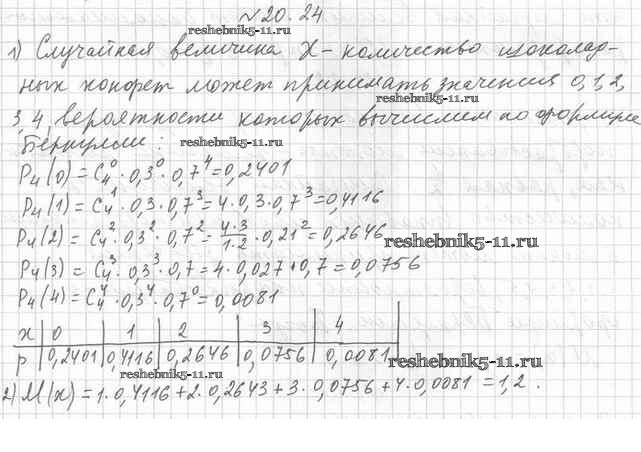 №20.24
reshebnik5-11.ru
1) Случайная величина X - количество шоколад-
ных конфет может принимать значения 0,1,2,
reshebnik5-11.ru
3,4, вероятности которых вычислим по формуле
Бернулли:
reshebnik5-11.ru
P₄(0) = C₄⁰ · 0,3⁰ · 0,7⁴ = 0,2401
P₄(1) = C₄¹ · 0,3 · 0,7³ = 4 · 0,3 · 0,7³ = 0,4116
P₄(2) = C₄² · 0,3² · 0,7² = 4·3/1·2 · 0,21² = 0,2646
reshebnik5-11.ru
P₄(3) = C₄³ · 0,3³ · 0,7 = 4 · 0,027 · 0,7 = 0,0756
P₄(4) = C₄⁴ · 0,3⁴ · 0,7⁰ = 0,0081
x 0 1 2 3 4
p 0,2401 0,4116 0,2646 0,0756 0,0081
reshebnik5-11.ru
reshebnik5-11.ru
2) M(x) = 1 · 0,4116 + 2 · 0,2643 + 3 · 0,0756 + 4 · 0,0081 = 1,2.